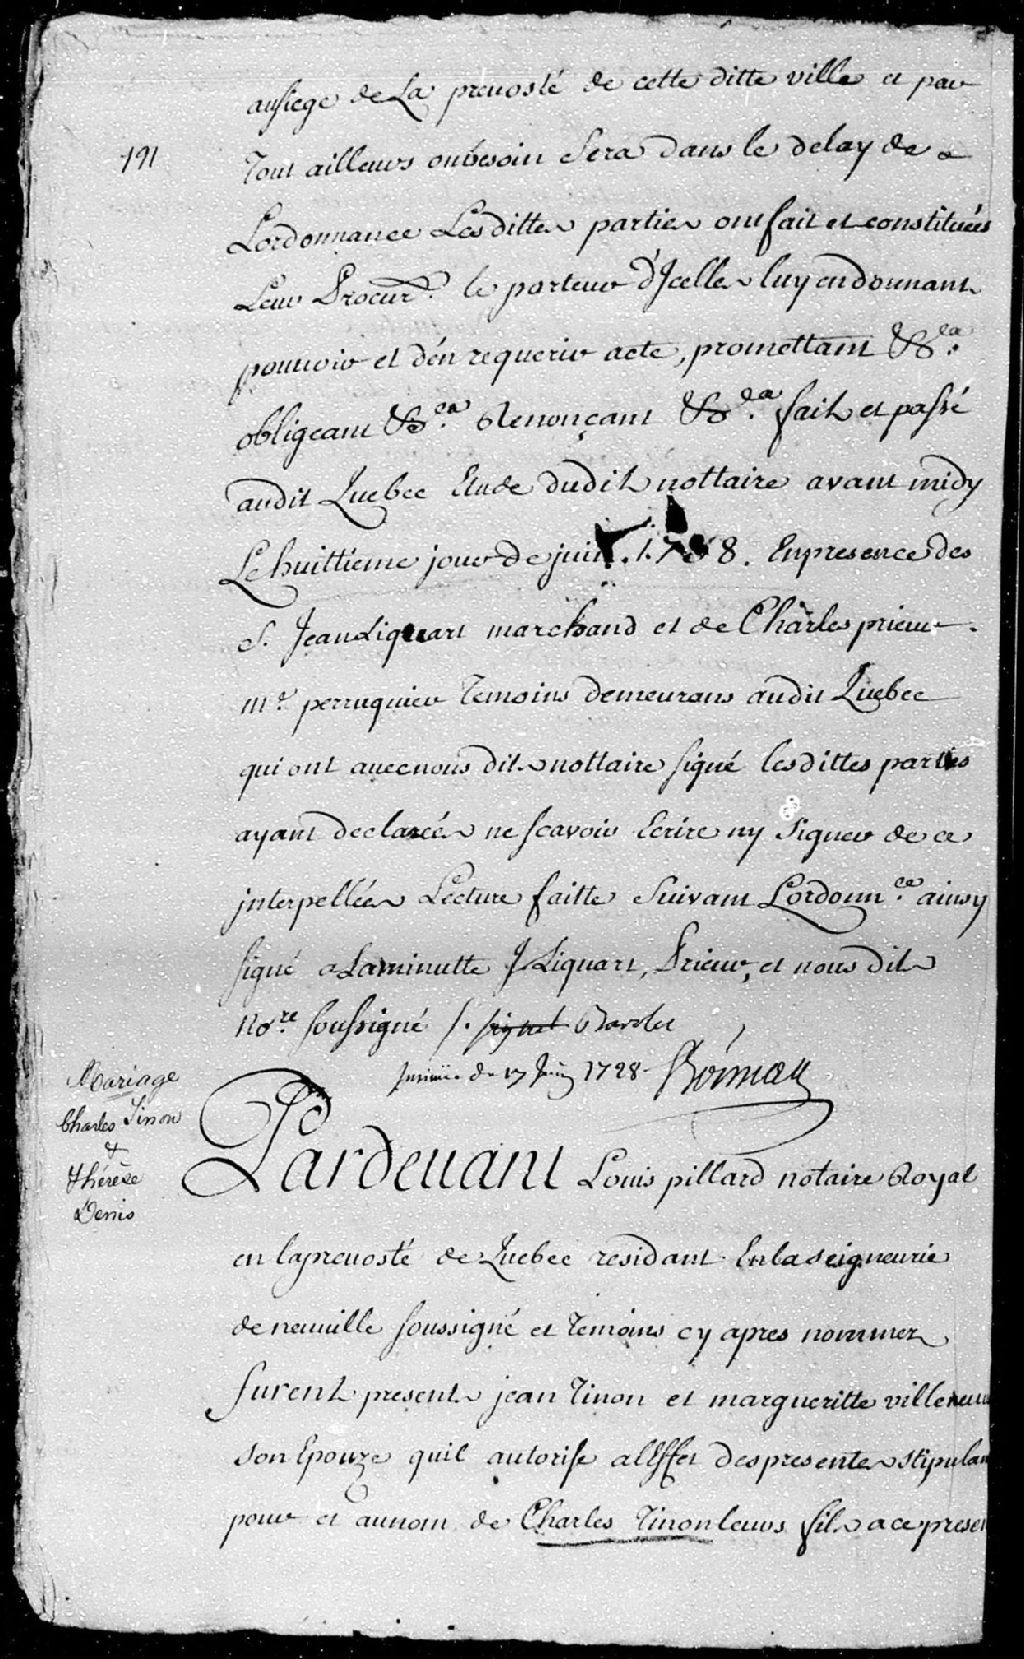 ausiege de La prevosté de cette ditte ville et par
191
Tout ailleurs oubesoin Sera dans le delay de
Lordonnance Lesdittes parties ont fait et constituées
Leur Procur.r le porteur d'Icelles luy en donnant
pouvoir et d'en requerir acte, promettant &.ca
obligeant &.ca Renonçant &.ca fait et passé
audit Quebec Etude dudit nottaire avant midy
Le huittieme jour de juin. 1728. En presence des
S. Jean Liquart marchand et de Charles prieur
m.e perruquier Temoins demeurans audit Quebec
qui ont avec nous dit nottaire signé lesdittes parties
ayant declarées ne scavoir Ecrire ny Signer de ce
jnterpellées Lecture faitte Suivant Lordonn.ce ainsy
signé a Laminutte J Liquart, Prieur, et nous dit
No.re soussigné /. signet Barolet
du 17 Juin 1728
Mariage
Charles Tinon
&
Thérèse
Denis
Pardevant Louis pillard notaire Royal
en laprevosté de Quebec residant En la seigneurie
de neuville soussigné et Temoins cy apres nommez
furent presents jean Tinon et margueritte villeneuve
son Epouze quil autorise a lEffet des presentes stipulan
pour et aunom de Charles Tinon leurs fils a ce presen